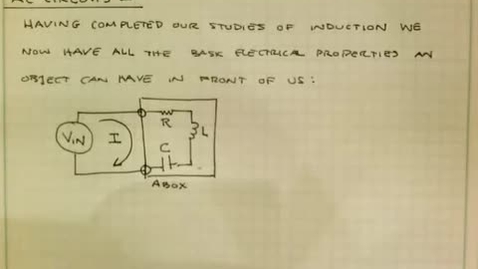 AC CIRCUITS
HAVING COMPLETED OUR STUDIES OF INDUCTION WE
NOW HAVE ALL THE BASIC ELECTRICAL PROPERTIES AN
OBJECT CAN HAVE IN FRONT OF US:
R
VIN I L
C
A BOX